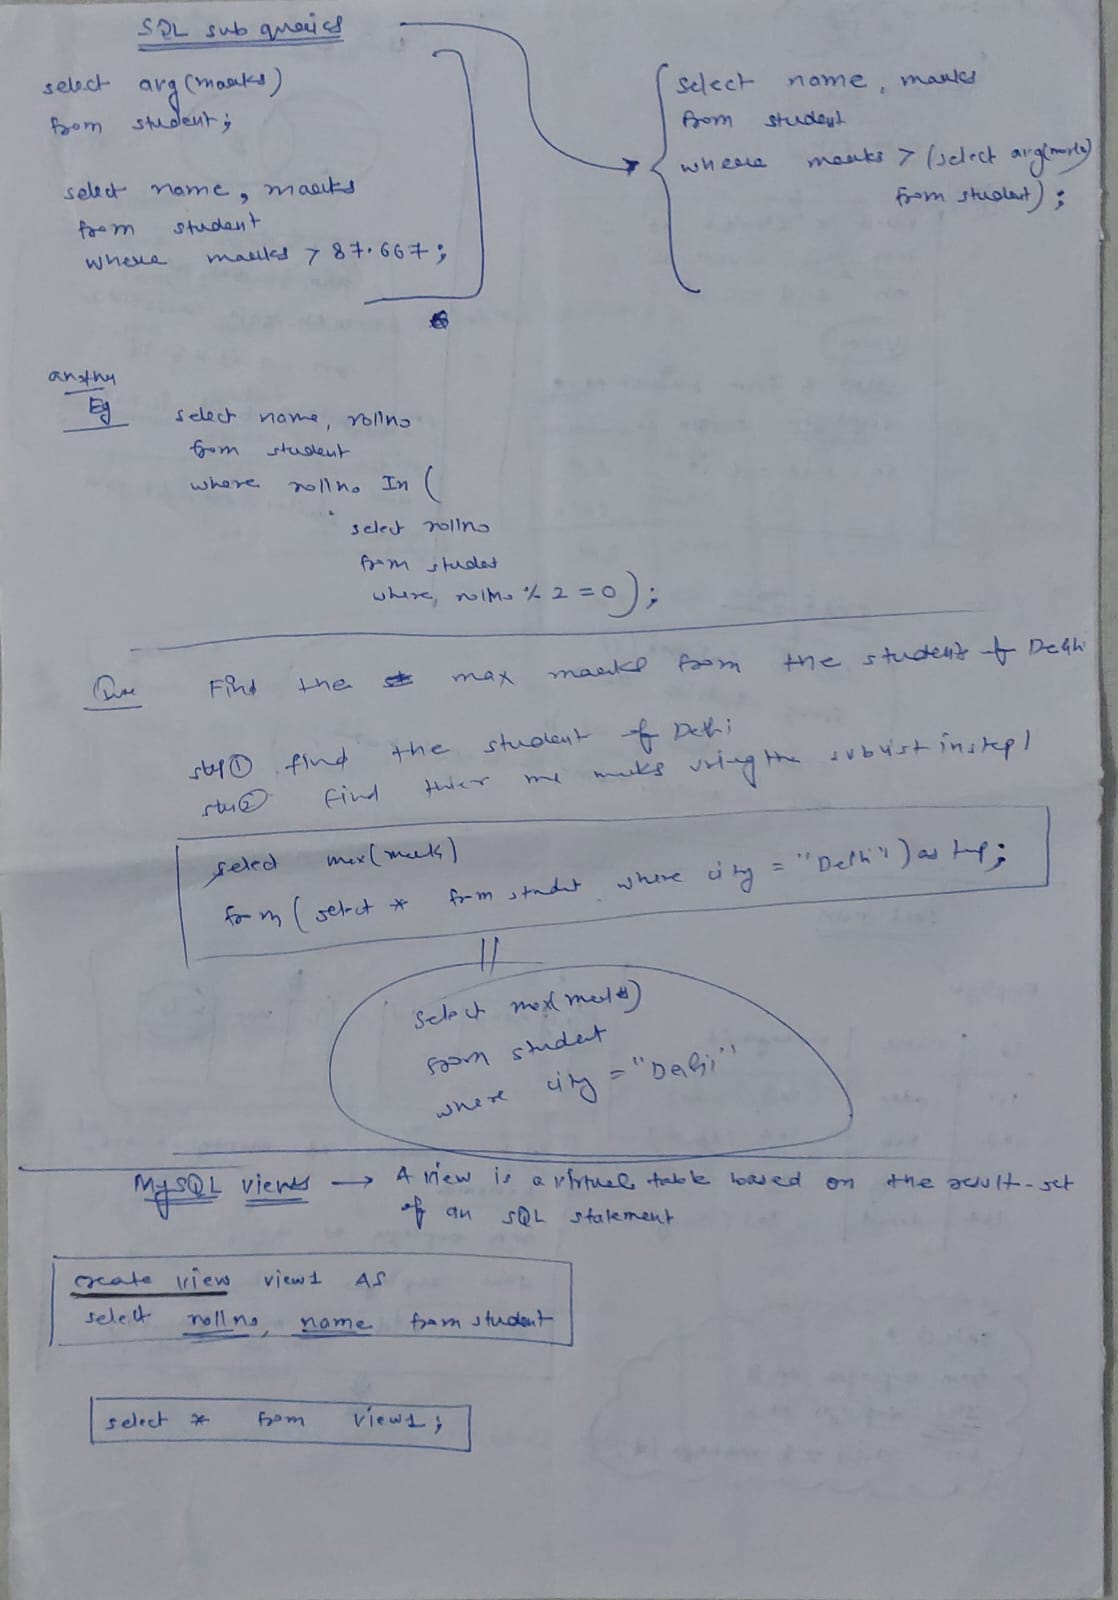 SQL sub queries
select avg(marks)
from student;
select name, marks
from student
where marks > 87.667;
select name, marks
from student
where marks > (select avg(marks)
from student);
another
Eg
select name, rollno
from student
where rollno In (
select rollno
from studet
where rollno % 2 = 0);
Que Find the max marks from the students of Delhi
step ① find the student of Delhi
step ② Find thier marks using the sublist in step 1
select max(marks)
from (select * from studet where city = "Delhi") as tmp;
||
select max(marks)
from student
where city = "Delhi"
MySQL views → A view is a virtual table based on the result-set
of an SQL statement
create view view1 AS
select rollno, name from student
select * from view1;